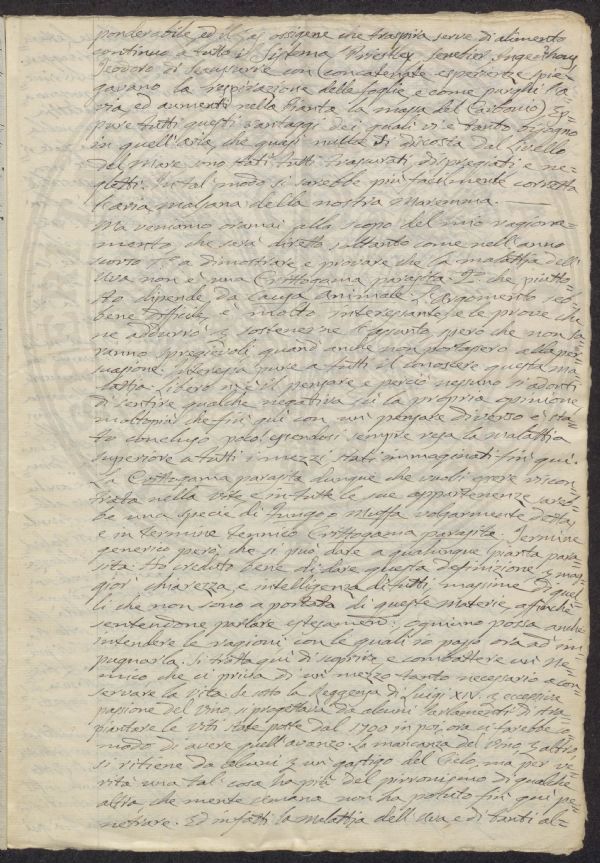 ponderabile, ed il gas ossigene che traspira serve di alimento
continuo a tutto il sistema (Priestley, Senebier, Ingenhouz
Teodoro di Seaussurie con concatenate esperienze spie=
gavano la respirazione delle foglie e come purghi l'a=
ria, ed aumenti nella pianta la massa del Carbonio) Ep=
pure tutti questi vantaggi dei quali vi è tanto bisogno
in quell'aria, che quasi nulla si discosta del Livello
del Mare sono stati tutti trascurati dispregiati e ne=
gletti. In tal modo si sarebbe più facilmente corretta
l'aria malsana della nostra Maremma.
Ma veniamo oramai allo scopo del mio ragiona=
mento che sarà diretto soltanto come nell'anno
scorso a dimostrare e provare che la malattia dell'
Uva non è una Crittogama parasita. che piutto=
sto dipende da causa animale. L'Argomento seb=
bene difficile, è molto interessante, e le prove che
ne addurrò a sostenerne l'assunto spero che non sa=
ranno spregievoli quand'anche non portassero alla per=
suasione. Interessa pure a tutti il conoscere questa ma=
lattia. Libero n'è il pensare e perciò nessuno si adonti
di sentire qualche negativa su la propria opinione,
moltopiù che fin qui con un pensare diverso è sta=
to concluso poco, essendosi sempre resa la malattia
superiore a tutti i mezzi stati immaginati fin qui.
La Crittogama parasita dunque che vuolsi essere riscon=
trata nella vite e in tutte le sue appartenenze sareb=
be una specie di Fungo o Muffa volgarmente detta,
e in termine tennico Crittogama parasita. Termine
generico però, che si può dare a qualunque pianta para=
sita. Ho creduto bene di dare questa definizione mag=
gior chiarezza, e intelligenza di tutti, massime di quel=
li che non sono a portata di queste materie, affinchè
sentendone parlare ognuno possa anche
intendere le ragioni con le quali io passo ora ad im=
pugnarla. Si tratta qui di scuoprire e combattere un ne=
mico che ci priva di un mezzo tanto necessario a con=
servare la vita. Se sotto la Reggenza di Luigi XIV. eccessiva
passione del Vino si progettava da alcuni Parlamenti di stra=
piantare le Viti state poste dal 1700 in poi, ora ci sarebbe co=
modo di avere quell'avanzo. La mancanza del Vino
si ritiene da alcuni un gastigo del Cielo, ma per ve=
rità una tal cosa ha più del pirronismo di qualche
altra che mente umana non ha potuto fin qui pe=
netrare. Ed infatti la malattia dell'Uva e di tanti al=